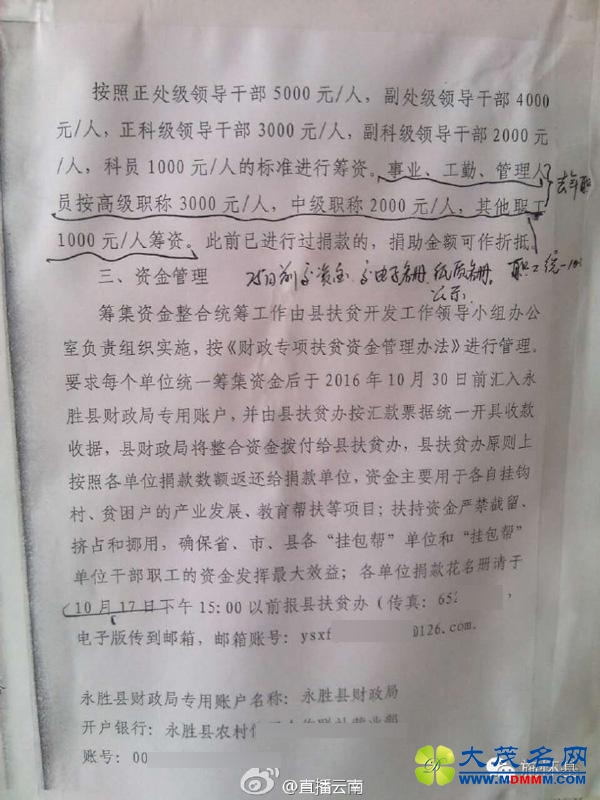 按照正处级领导干部 5000 元/人，副处级领导干部 4000
元/人，正科级领导干部 3000 元/人，副科级领导干部 2000 元
/人，科员 1000 元/人的标准进行筹资。事业、工勤、管理人
员按高级职称 3000 元/人，中级职称 2000 元/人，其他职工
1000 元/人筹资。此前已进行过捐款的，捐助金额可作折抵。
职工统一
三、资金管理
25日前交资金 交电子名册 纸质名册
公示
筹集资金整合统筹工作由县扶贫开发工作领导小组办公
室负责组织实施，按《财政专项扶贫资金管理办法》进行管理。
要求每个单位统一筹集资金后于 2016 年 10 月 30 日前汇入永
胜县财政局专用账户，并由县扶贫办按汇款票据统一开具收款
收据，县财政局将整合资金拨付给县扶贫办，县扶贫办原则上
按照各单位捐款数额返还给捐款单位，资金主要用于各自挂钩
村、贫困户的产业发展、教育帮扶等项目；扶持资金严禁截留、
挤占和挪用，确保省、市、县各“挂包帮”单位和“挂包帮”
单位干部职工的资金发挥最大效益；各单位捐款花名册请于
10 月 17 日下午 15:00 以前报县扶贫办（传真：652 ，
电子版传到邮箱，邮箱账号：ysxf @126.com.
永胜县财政局专用账户名称：永胜县财政局
开户银行：永胜县农村
账号：00
@直播云南
大茂名网
WWW.MDMMM.COM